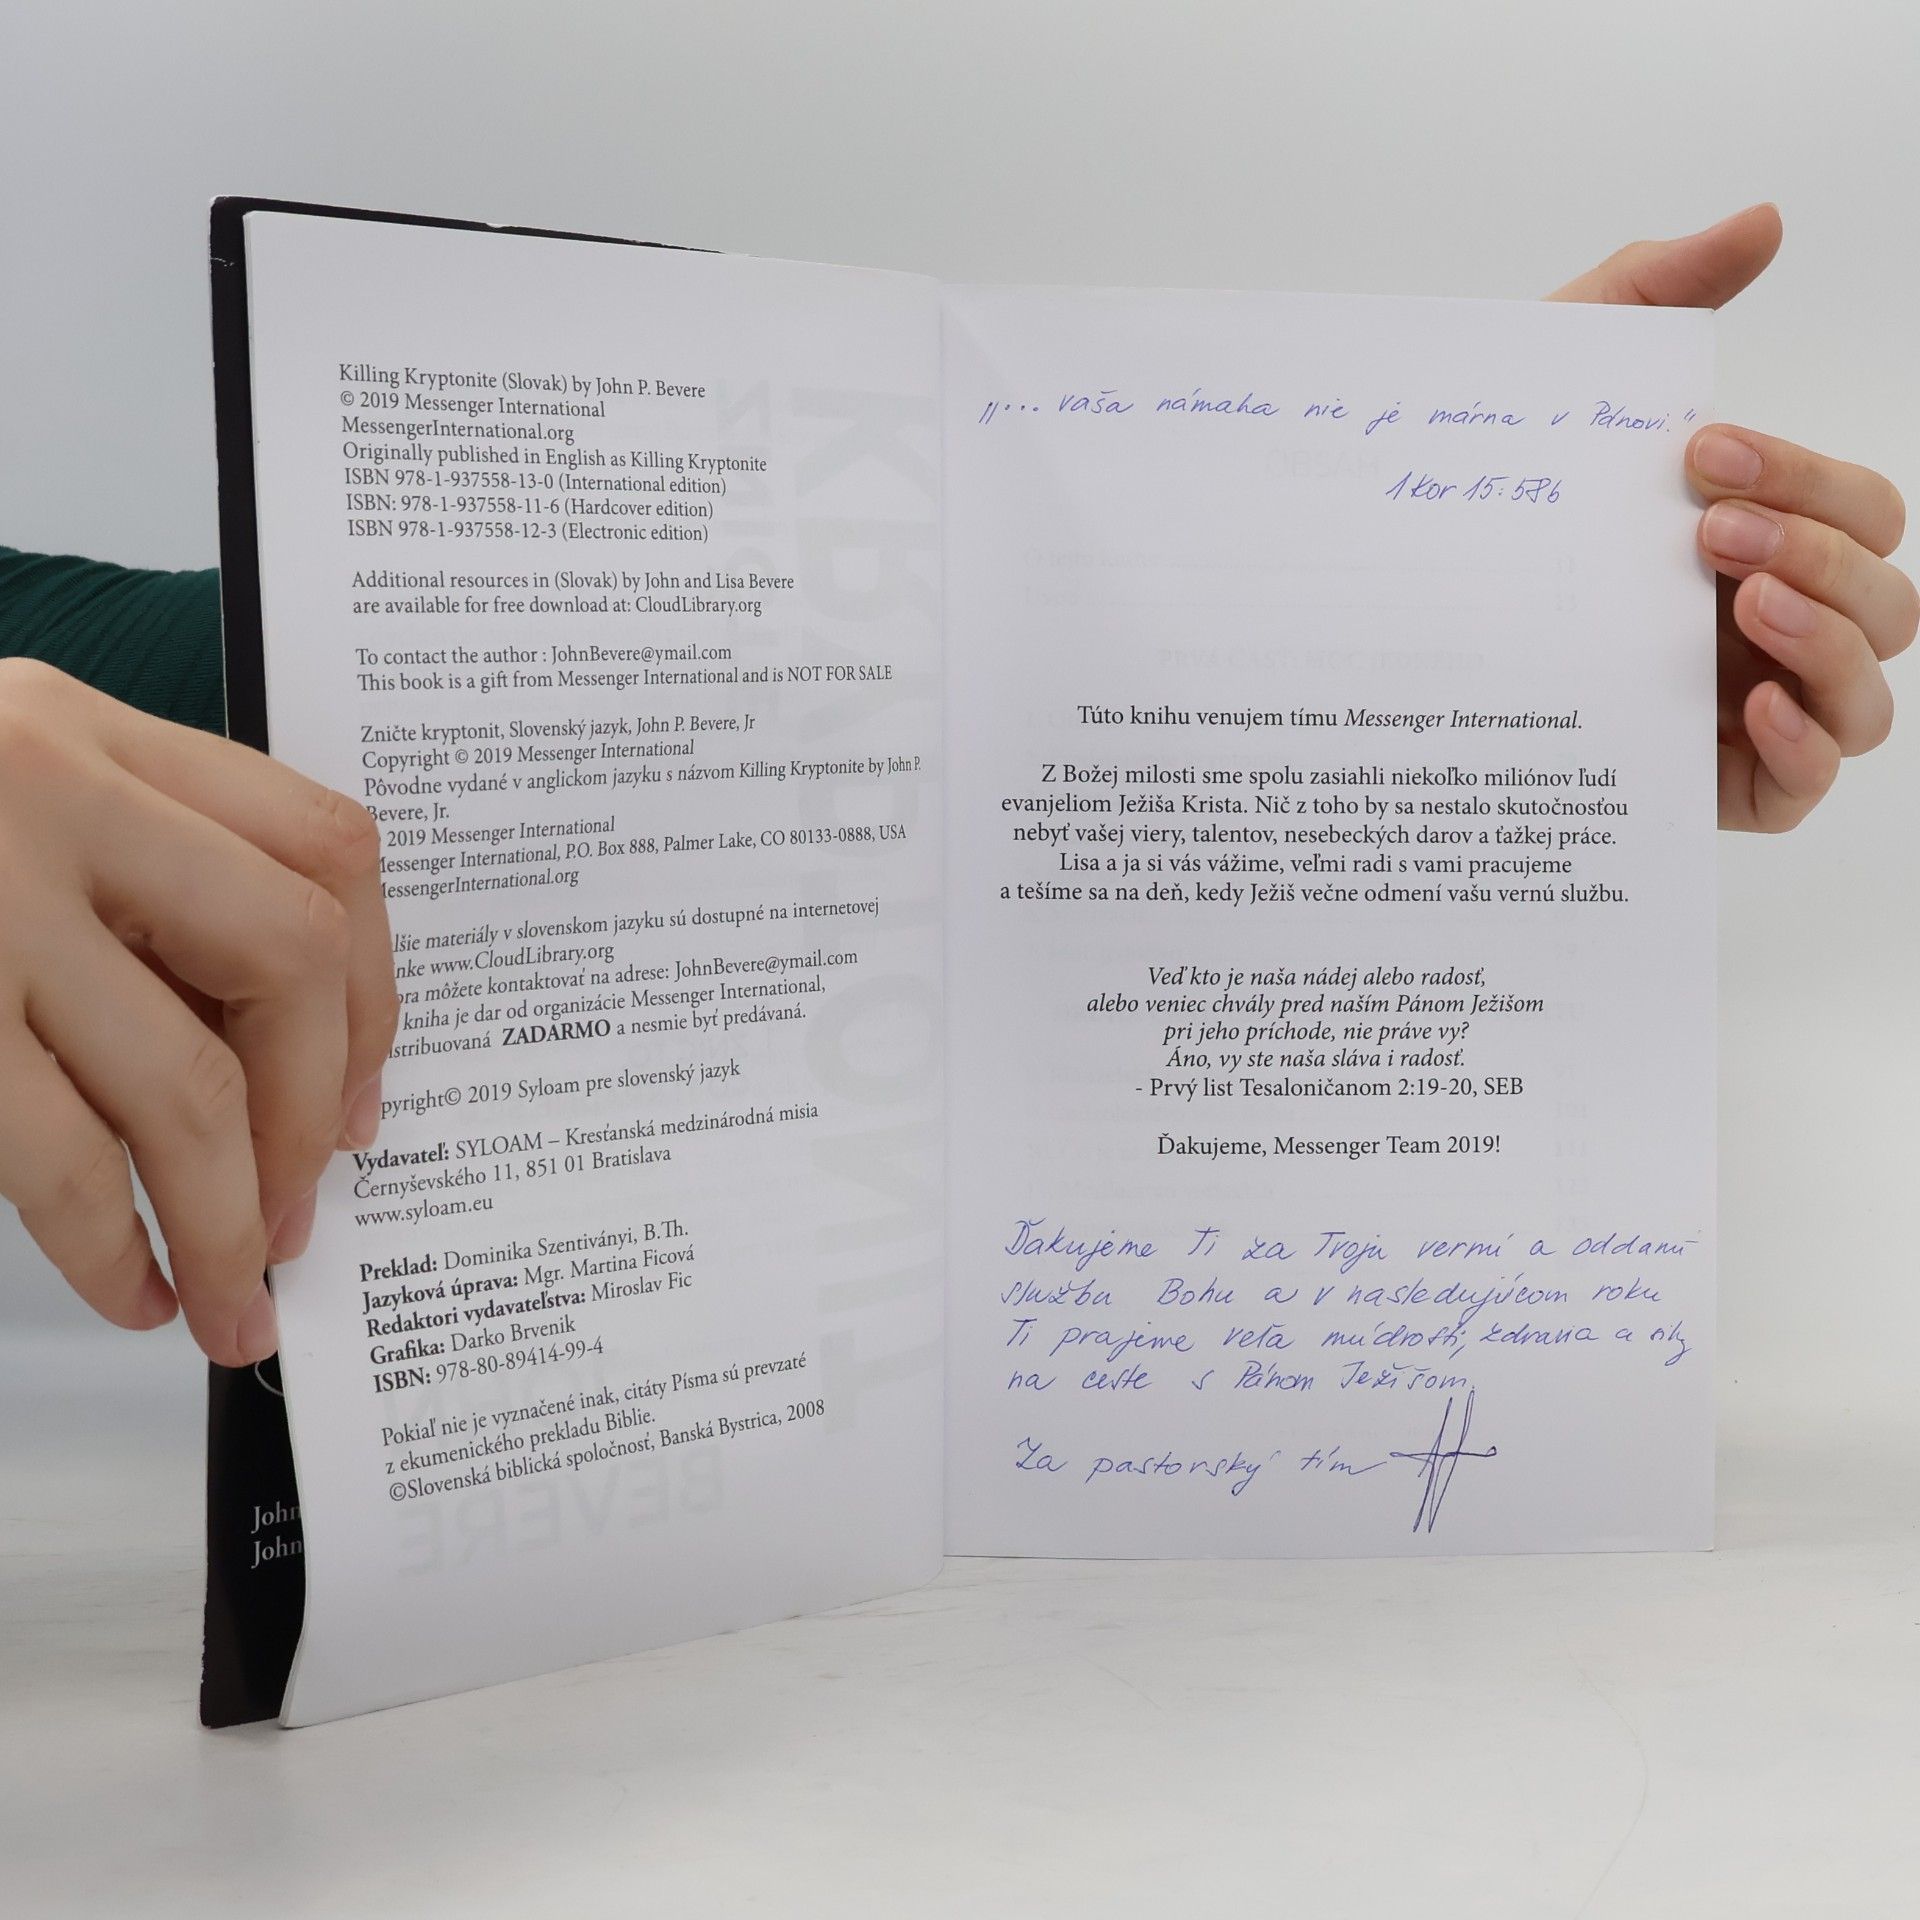 Killing Kryptonite (Slovak) by John P. Bevere
© 2019 Messenger International
MessengerInternational.org
Originally published in English as Killing Kryptonite
ISBN 978-1-937558-13-0 (International edition)
ISBN: 978-1-937558-11-6 (Hardcover edition)
ISBN 978-1-937558-12-3 (Electronic edition)
Additional resources in (Slovak) by John and Lisa Bevere
are available for free download at: CloudLibrary.org
To contact the author : JohnBevere@ymail.com
This book is a gift from Messenger International and is NOT FOR SALE
Zničte kryptonit, Slovenský jazyk, John P. Bevere, Jr
Copyright © 2019 Messenger International
Pôvodne vydané v anglickom jazyku s názvom Killing Kryptonite by John P.
Bevere, Jr.
2019 Messenger International
Messenger International, P.O. Box 888, Palmer Lake, CO 80133-0888, USA
MessengerInternational.org
lšie materiály v slovenskom jazyku sú dostupné na internetovej
nke www.CloudLibrary.org
ora môžete kontaktovať na adrese: JohnBevere@ymail.com
kniha je dar od organizácie Messenger International,
istribuovaná ZADARMO a nesmie byť predávaná.
pyright© 2019 Syloam pre slovenský jazyk
Vydavateľ: SYLOAM – Kresťanská medzinárodná misia
Černyševského 11, 851 01 Bratislava
www.syloam.eu
Preklad: Dominika Szentiványi, B.Th.
Jazyková úprava: Mgr. Martina Ficová
Redaktori vydavateľstva: Miroslav Fic
Grafika: Darko Brvenik
ISBN: 978-80-89414-99-4
Pokiaľ nie je vyznačené inak, citáty Písma sú prevzaté
z ekumenického prekladu Biblie.
©Slovenská biblická spoločnosť, Banská Bystrica, 2008
John
John
„... vaša námaha nie je márna v Pánovi."
1 Kor 15:58b
Túto knihu venujem tímu Messenger International.
Z Božej milosti sme spolu zasiahli niekoľko miliónov ľudí
evanjeliom Ježiša Krista. Nič z toho by sa nestalo skutočnosťou
nebyť vašej viery, talentov, nesebeckých darov a ťažkej práce.
Lisa a ja si vás vážime, veľmi radi s vami pracujeme
a tešíme sa na deň, kedy Ježiš večne odmení vašu vernú službu.
Veď kto je naša nádej alebo radosť,
alebo veniec chvály pred naším Pánom Ježišom
pri jeho príchode, nie práve vy?
Áno, vy ste naša sláva i radosť.
- Prvý list Tesaloničanom 2:19-20, SEB
Ďakujeme, Messenger Team 2019!
Ďakujeme Ti za Tvoju vernú a oddanú
službu Bohu a v nasledujúcom roku
Ti prajeme veľa múdrosti, zdravia a sily
na ceste s Pánom Ježišom.
Za pastorský tím